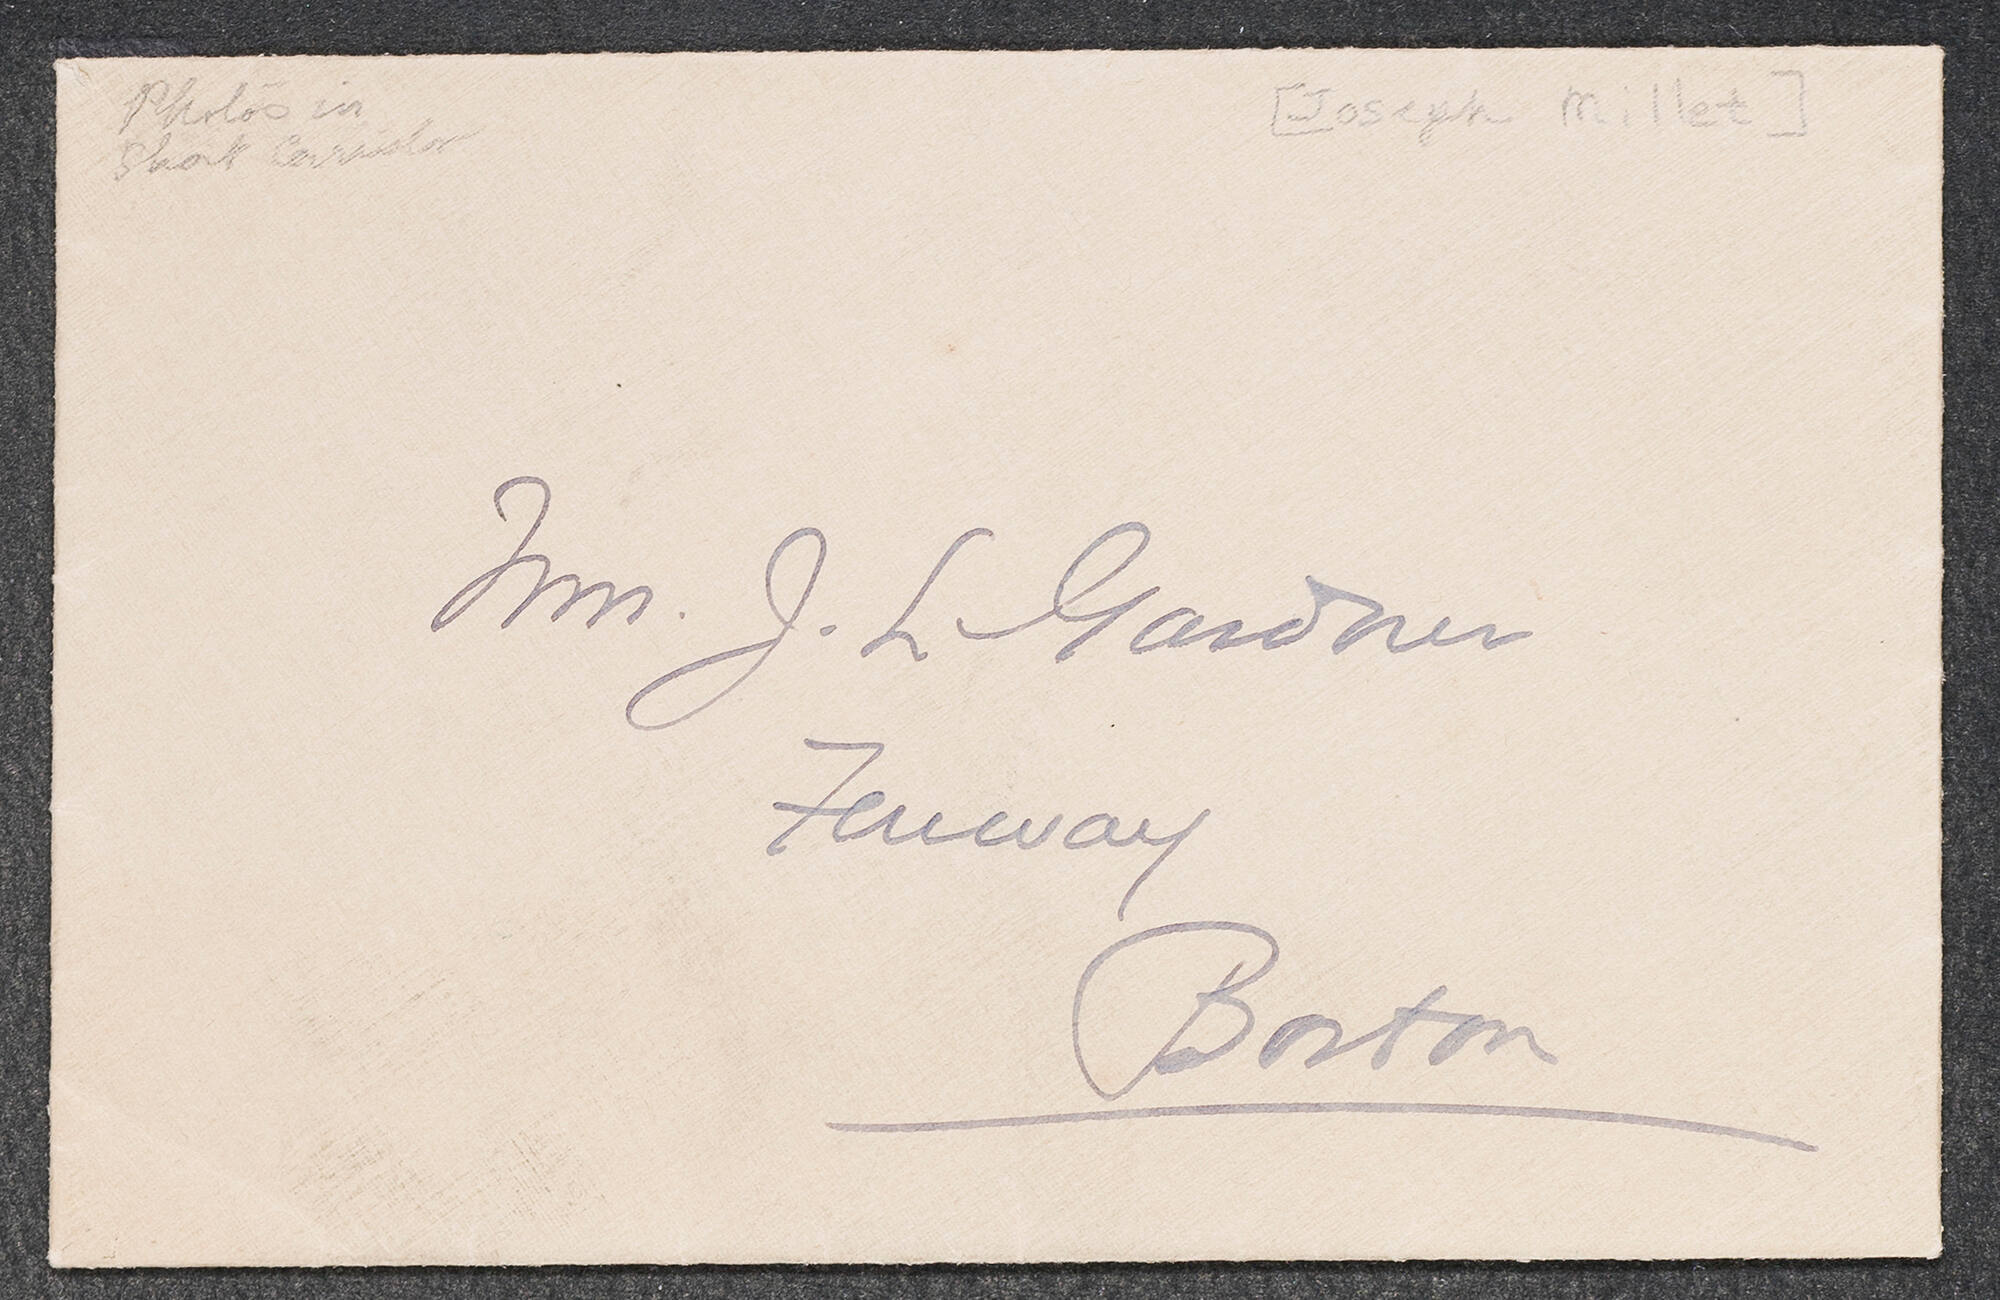 Photos in
Short Corridor
[Joseph Millet]
Mrs. J. L Gardner
Fenway
Boston